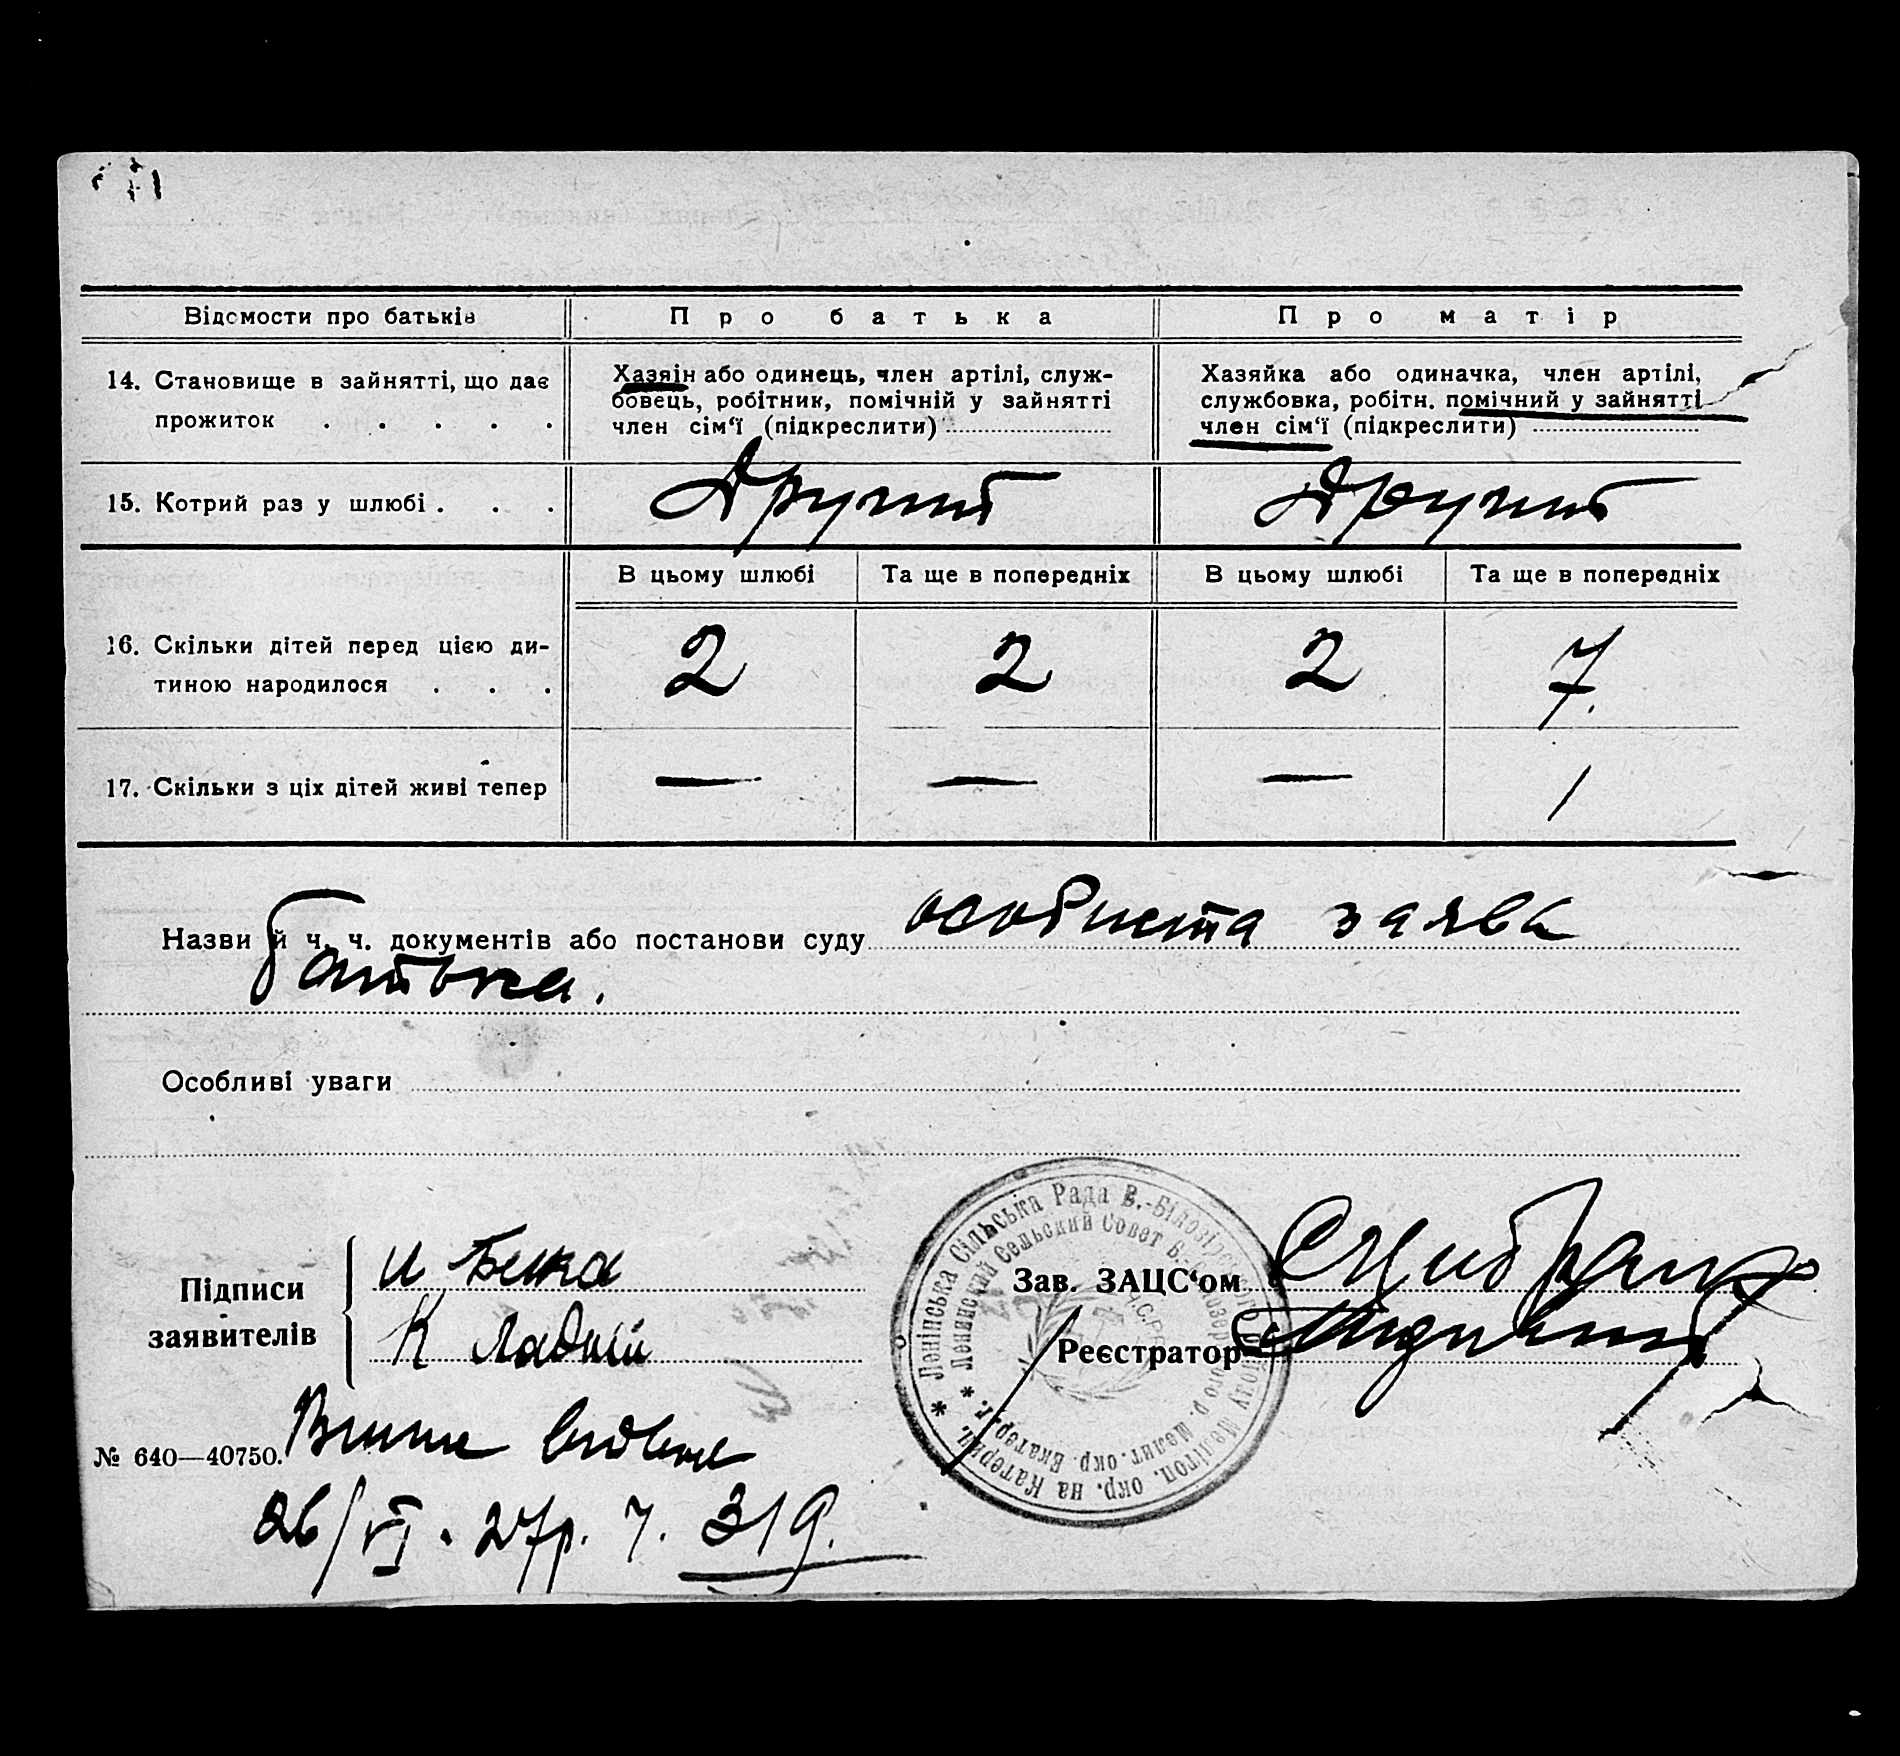 Відомости про батьків
Про батька
Про матір
14. Становище в зайнятті, що дає
прожиток . . . . .
Хазяін або одинець, член артілі, служ-
бовець, робітник, помічній у зайнятті
член сім‘ї (підкреслити)
Хазяйка або одиначка, член артілі,
службовка, робітн. помічний у зайнятті
член сім‘ї (підкреслити)
15. Котрий раз у шлюбі . . .
Другий
Другий
В цьому шлюбі
Та ще в попередніх
В цьому шлюбі
Та ще в попередніх
16. Скільки дітей перед цією ди-
тиною народилося . . .
2
2
2
7.
17. Скільки з ціх дітей живі тепер
—
—
—
1
Назви й ч. ч. документів або постанови суду особиста заява
батька.
Особливі уваги
Підписи
заявителів
и
К Ладній
Зав. ЗАЦС‘ом
Реєстратор
* Ленінська Сільська Рада В.-Білозірського району Мелітоп. окр. на Катерин.
* Ленинский Сельский Совет Б.-Белозерского р. Мелит. окр. Екатер. г.
№ 640—40750.
26/VI. 27р. ч. 319.